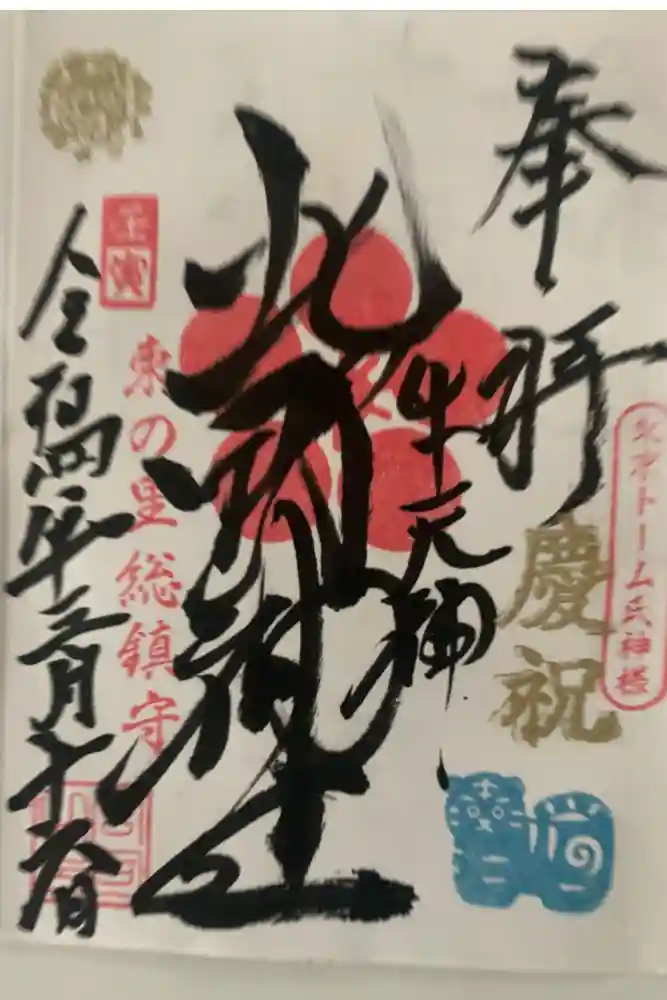 奉拝
東京ドーム氏神様
慶祝
牛天神
北野神社
壬寅
東の里総鎮守
令和四年三月十六日